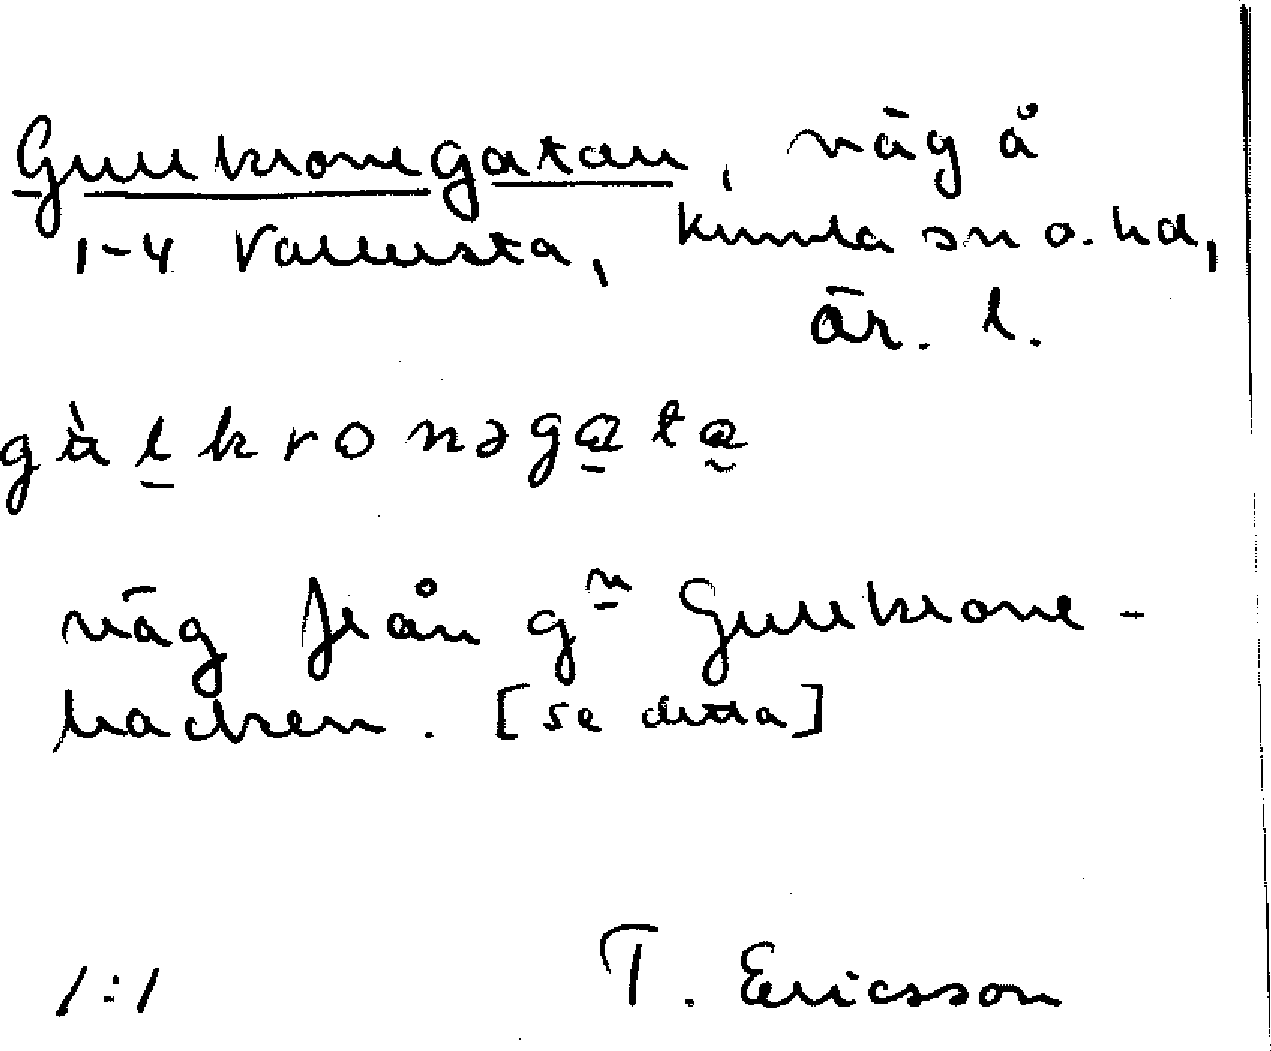 Gullkronegatan, väg å
1-4 Vallersta, Kumla sn o. hd,
Är. l.
gùlkronəgata
väg från gn Gullkrone-
backen. [se detta]
1:1 T. Ericsson